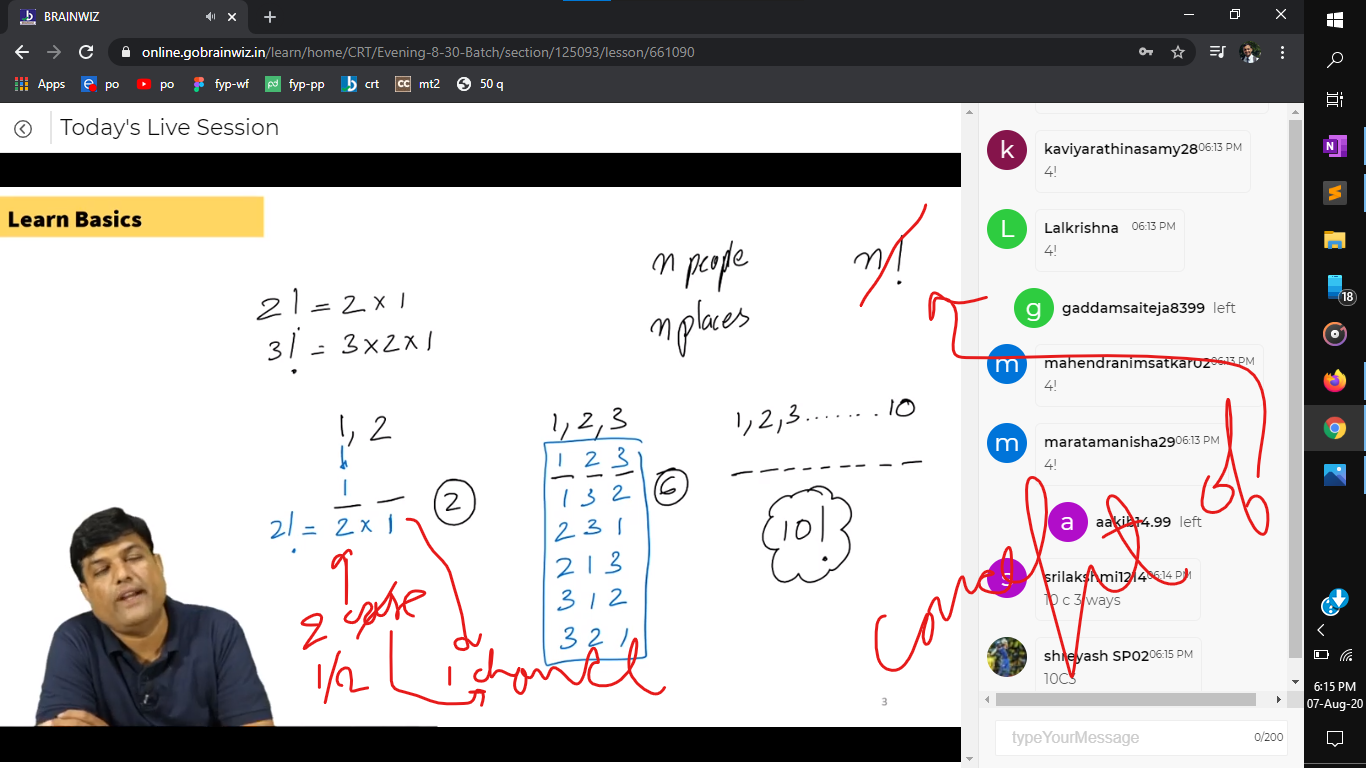 BRAINWIZ
online.gobrainwiz.in/learn/home/CRT/Evening-8-30-Batch/section/125093/lesson/661090
Apps po po fyp-wf fyp-pp crt mt2 50 q
Today's Live Session
Learn Basics
n people n!
n places
2! = 2 x 1
3! = 3x2x1
1, 2
1
2! = 2 x 1
2
2
1/2
1
1,2,3
1 2 3
1 3 2
2 3 1
2 1 3
3 1 2
3 2 1
6
1,2,3.......10
10!
3
k
kaviyarathinasamy28 06:13 PM
4!
L
Lalkrishna 06:13 PM
4!
g
gaddamsaiteja8399 left
m
mahendranimsatkar02 06:13 PM
4!
m
maratamanisha29 06:13 PM
4!
a
aakib14.99 left
s
srilakshmi1214 06:14 PM
10 c 3 ways
shreyash SP02 06:15 PM
10C3
typeYourMessage 0/200
18
6:15 PM
07-Aug-20